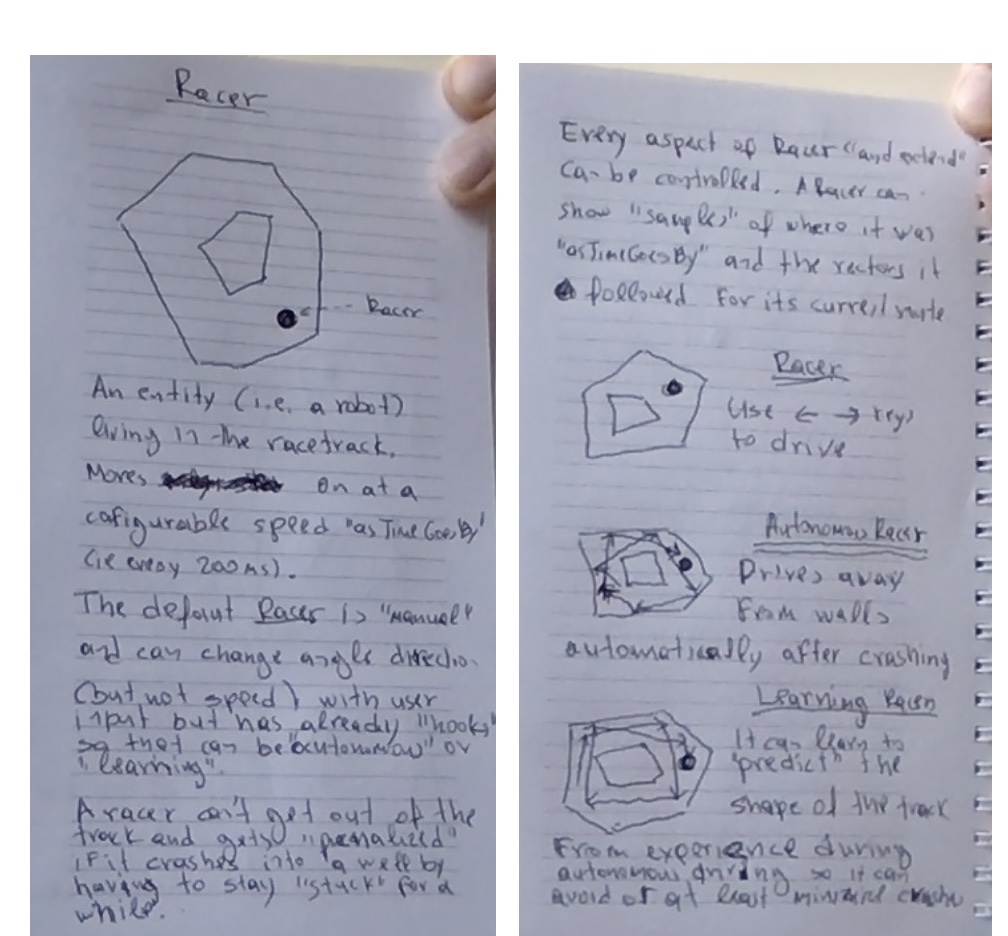 Racer
Racer
An entity (i.e. a robot)
living in the racetrack.
Moves on at a
cofigurable speed "asTimeGoesBy"
(ie every 200ms).
The default Racer is "manual"
and can change angle directio
(but not speed) with user
input but has already "hooks"
so that can be "autonomow" or
"learning".
A racer can't get out of the
track and gets "penalized"
if it crashes into a wall by
having to stay "stuck" for a
while.
Every aspect of Racer "and extend"
can be controlled. A Racer can
show "samples" of where it was
"asTimeGoesBy" and the vectors it
followed for its current route
Racer
Use ← → keys
to drive
Autonomous Racer
Drives away
from walls
automatically after crashing
Learning Racer
It can learn to
"predict" the
shape of the track
From experience during
autonomous driving so it can
avoid or at least minimize crashes